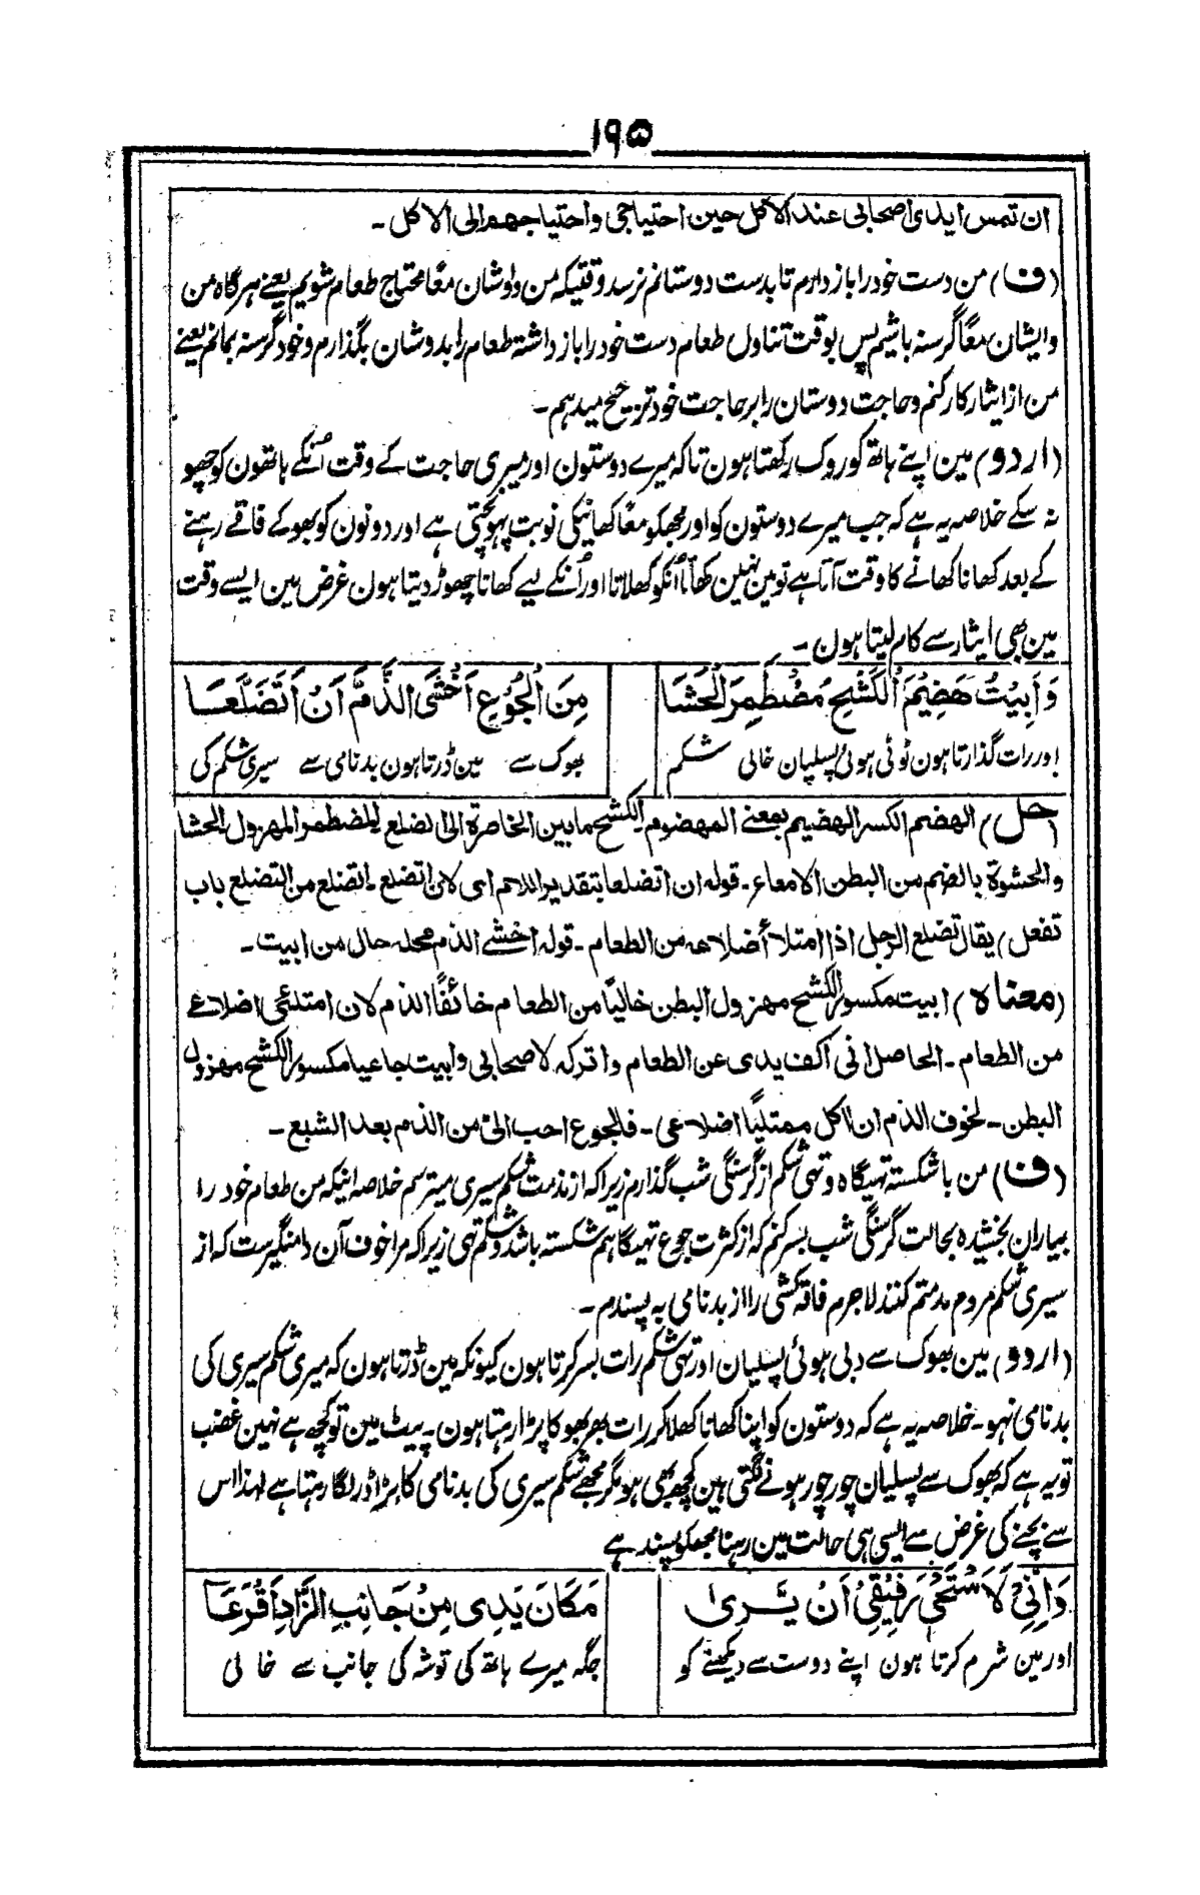 ۱۹۵
ان تمس ایدی اصحابی عند الاکل حین احتیاجی و احتیاجهم الی الاکل۔
(ف) من دست خود را باز دارم تا بدست دوستانم نرسد وقتیکه من و اوشان معًا محتاج طعام شویم یعنے هرگاه من
وایشان معًا گرسنه باشیم پس بوقت تناول طعام دست خود را باز داشته طعام را بدوشان بگذارم و خود گرسنه بمانم یعنے
من از ایثار کار کنم و حاجت دوستان را بر حاجت خود ترجیح میدهم۔
(اردو) مین اپنے ہاتھ کو روک رکھتا ہون تاکہ میرے دوستون اور میری حاجت کے وقت اُنکے ہاتھون کو چھو
نہ سکے خلاصہ یہ ہے کہ جب میرے دوستون کو اور مجھکو معًا کھانیکی نوبت پہونچتی ہے اور دونون کو بھوکے فاقے رہنے
کے بعد کھانا کھانے کا وقت آتا ہے تو مین نہین کھاتا اُنکو کھلاتا اور اُنکے لیے کھانا چھوڑ دیتا ہون غرض مین ایسے وقت
مین بھی ایثار سے کام لیتا ہون۔
وَاَبِیْتُ هَضِیْمَ الْکَشْحِ مُضْطَمِرَ الْحَشَا مِنَ الْجُوْعِ اَخْشَی الذَّمَّ اَنْ اَتَضَلَّعَا
اور رات گذارتا ہون ٹوٹی ہوئی پسلیان خالی شکم بھوک سے مین ڈرتا ہون بدنامی سے سیری شکم کی
(حل) الهضم الکسر الهضیم بمعنے المهضوم الکشح مابین الخاصرة الی الضلع المضطمر المهزول الحشا
والحشوة بالضم من البطن الامعاء۔ قوله ان اتضلعا بتقدیر اللام ای لان اتضلع۔ اتضلع من التضلع باب
تفعل) یقال تضلع الرجل اذا امتلأ اضلاعه من الطعام۔ قوله اخشے الذم محله حال من ابیت۔
(معناه) ابیت مکسور الکشح مهزول البطن خالیًا من الطعام خائفًا الذم لان امتلئی اضلاعی
من الطعام۔ الحاصل انی اکف یدی عن الطعام واترکه لاصحابی وابیت جاعیا مکسور الکشح مهزول
البطن۔ لخوف الذم ان اٰکل ممتلیًا اضلاعی۔ فالجوع احب الیّ من الذم بعد الشبع۔
(ف) من با شکسته تهیگاه و تهی شکم از گرسنگی شب گذارم زیراکه از مذمت شکم سیری میترسم خلاصه اینکه من طعام خود را
بیاران بخشیده بحالت گرسنگی شب بسر کنم که از کثرت جوع تهیگاهم شکسته باشد و شکم تهی زیراکه مرا خوف آن دامنگیرست که از
سیری شکم مردم مذمتم کنند لاجرم فاقه کشی را از بدنامی به پسندم۔
(اردو) مین بھوک سے دبی ہوئی پسلیان اور تہی شکم رات بسر کرتا ہون کیونکہ مین ڈرتا ہون کہ میری شکم سیری کی
بدنامی نہو۔ خلاصہ یہ ہے کہ دوستون کو اپنا کھانا کھلا کر رات بھر بھوکا پڑا رہتا ہون۔ پیٹ مین تو کچھ ہے نہین غضب
تو یہ ہے کہ بھوک سے پسلیان چور چور ہونے لگتی ہین کچھ بھی ہو مگر مجھے شکم سیری کی بدنامی کا بڑا ڈر لگا رہتا ہے لہذا اس
سے بچنے کی غرض سے ایسی ہی حالت مین رہنا مجھکو پسند ہے
وَاِنِّیْ لَاَسْتَحْیِیْ رَفِیْقِیْ اَنْ یَّرٰی مَکَانَ یَدِی مِنْ جَانِبِ الزَّادِ اَقْرَعَا
اور مین شرم کرتا ہون اپنے دوست سے دیکھنے کو جگہ میرے ہاتھ کی توشہ کی جانب سے خالی